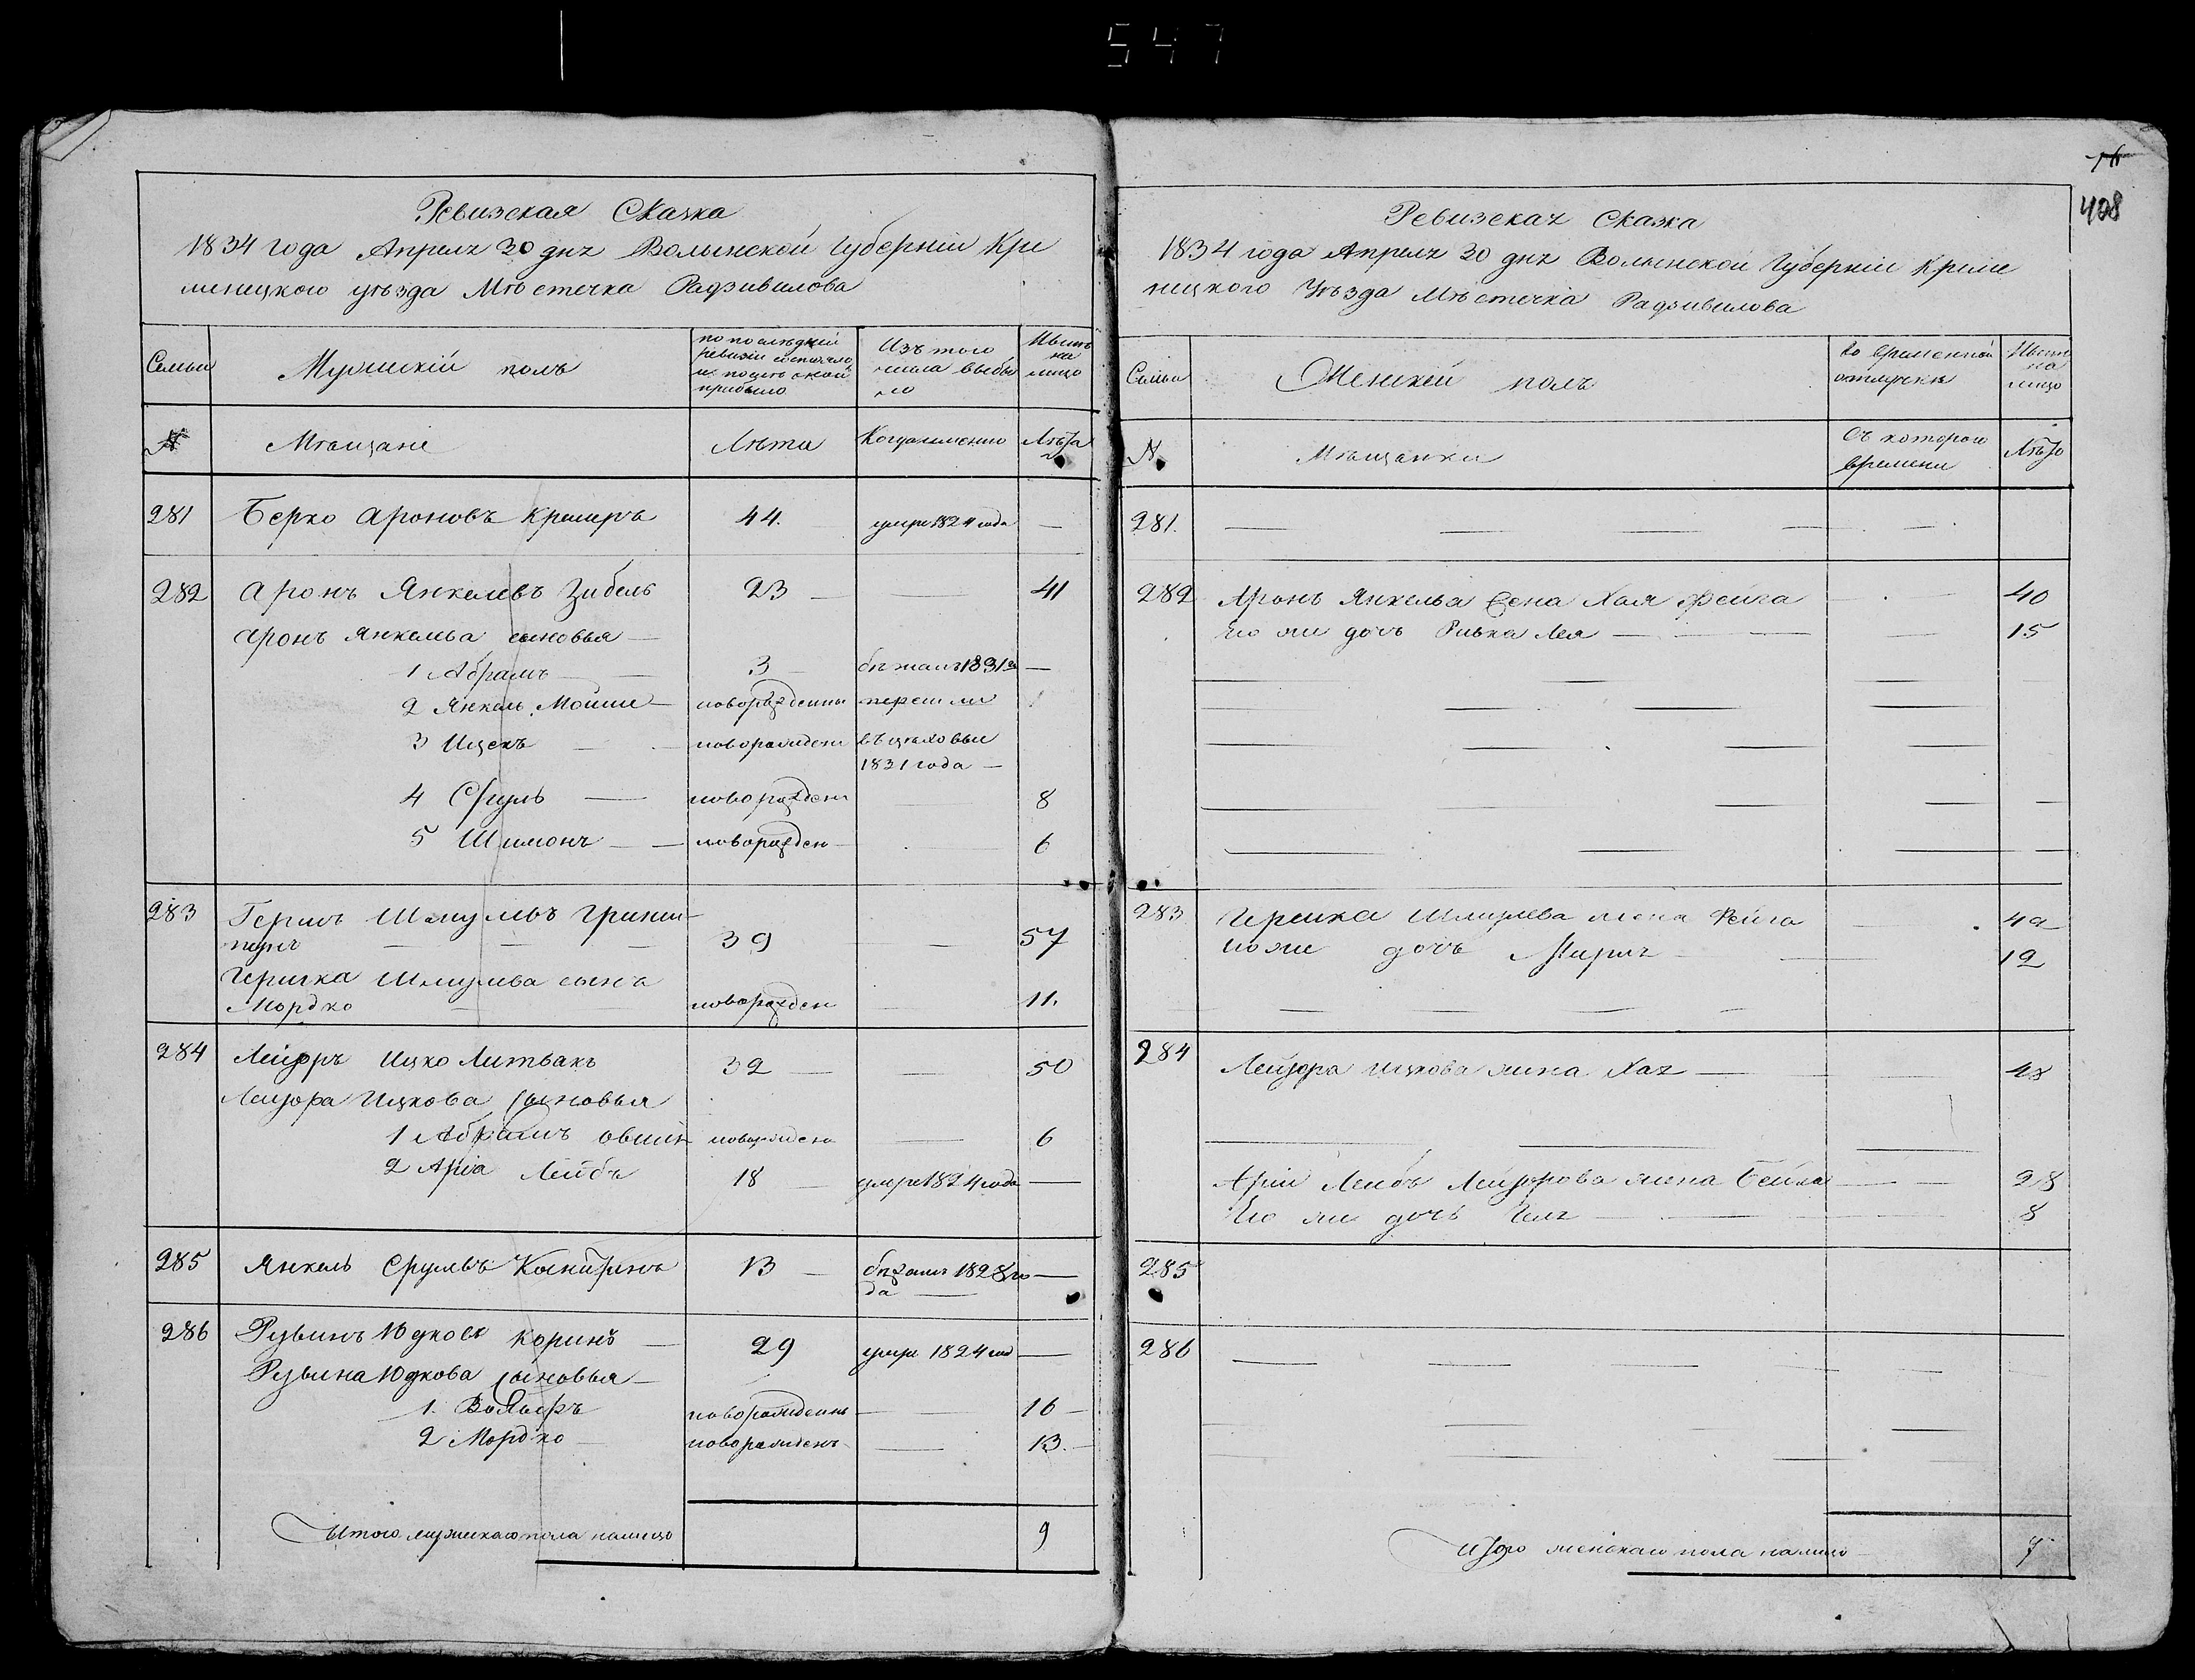 547
Ревизская Сказка
1834 года Апреля 30 дня Волынской Губерніи Кре
менецкого уѣзда Мѣстечка Радзивилова
Семьи
Мужескій полъ
по послѣдней
ревизіи состояло
и послѣ оной
прибыло
Изъ того
числа выбы
ло
Нынѣ
на
лицо
№
Мѣщане
Лѣта
Когда именно
Лѣта
281 Берко Ароновъ 44. умре 1824 года —
282 Аронъ Янкелевъ Зибель 23 — — 41
Аронъ Янкельва сыновья —
1 Абрамъ — 3 — бѣжалъ 1831 —
2 Янкель Мошке — новорожденны перешли
3 Ицекъ — новорожден въ цеховые
1831 года —
4 Сруль — новорожден 8
5 Шимонъ — новорожден 6
283 Гершъ Шмулевъ
39 — 57
Гершка Шмулева сынъ
Мордко — новорожден — 11.
284 Лейзоръ Ицко Литвакъ 32 — — 50
Лейзора Ицкова сыновья
1 Абрамъ новорожден — 6
2 Аріа Лейбъ 18 — умре 1824 года —
285 Янкель Срулевъ 13 — бѣжалъ 1828 го —
да —
286 Рувинъ Юдковъ Коринъ — 29 умре 1824 год —
Рувина Юдкова сыновья —
1. новорожденны — 16 —
2 Мордко — новорожденъ — 13. —
Итого мужескаго пола налицо 9
408
Ревизская Сказка
1834 года Апреля 30 дня Волынской Губерніи Креме
ницкого Уѣзда Мѣстечка Радзивилова
Семьи
Женскій полъ
Во временной
отлучкѣ
Нынѣ
на
лицо
№
Мѣщанки
Съ которого
времени
Лѣта
281. — — — —
282 Аронъ Янкельва жена Хая Фейга — 40
Его же дочь Ривка Лея — — 15
283 Гершка Шмулева жена Фейга — 42
его же дочь Мирля — 12
284 Лейзора Ицкова жена Хая — — 48
Арии Лейбъ Лейзорова жена Бейла — 28
Его же дочь — 8
285
286 — — — —
Итого женскаго пола налицо 7